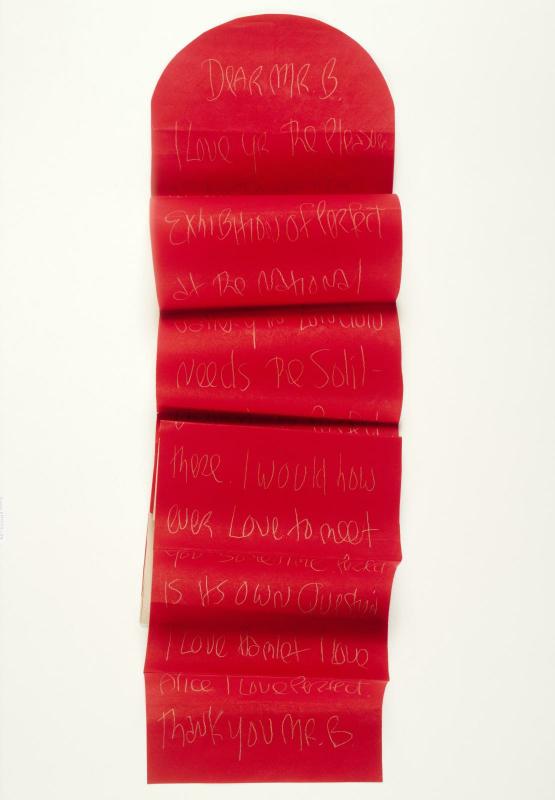 DEAR MR. B.
I Love you The Pleasure
EXHIBITION of Perfect
at The NATIONAL
in
needs The Solil-
there. I would how
ever Love to meet
you sometime.
IS ITS OWN Question
I Love Hamlet I love
Alice I Love Perfect.
Thank you MR. B.